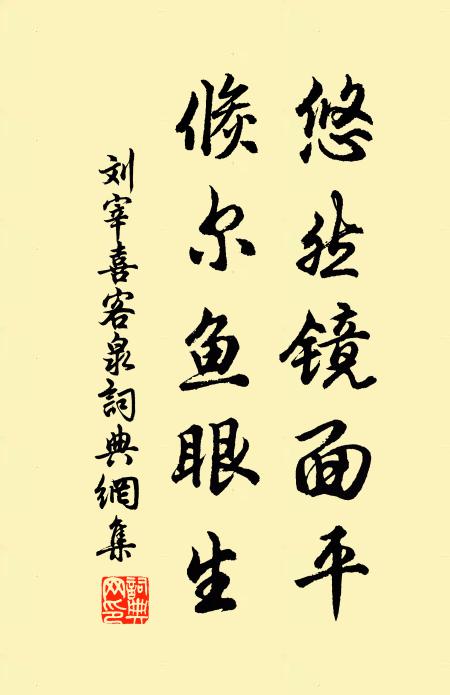 悠然镜面平
倏尔鱼眼生
刘宰喜客泉詞典網集
詞典网印